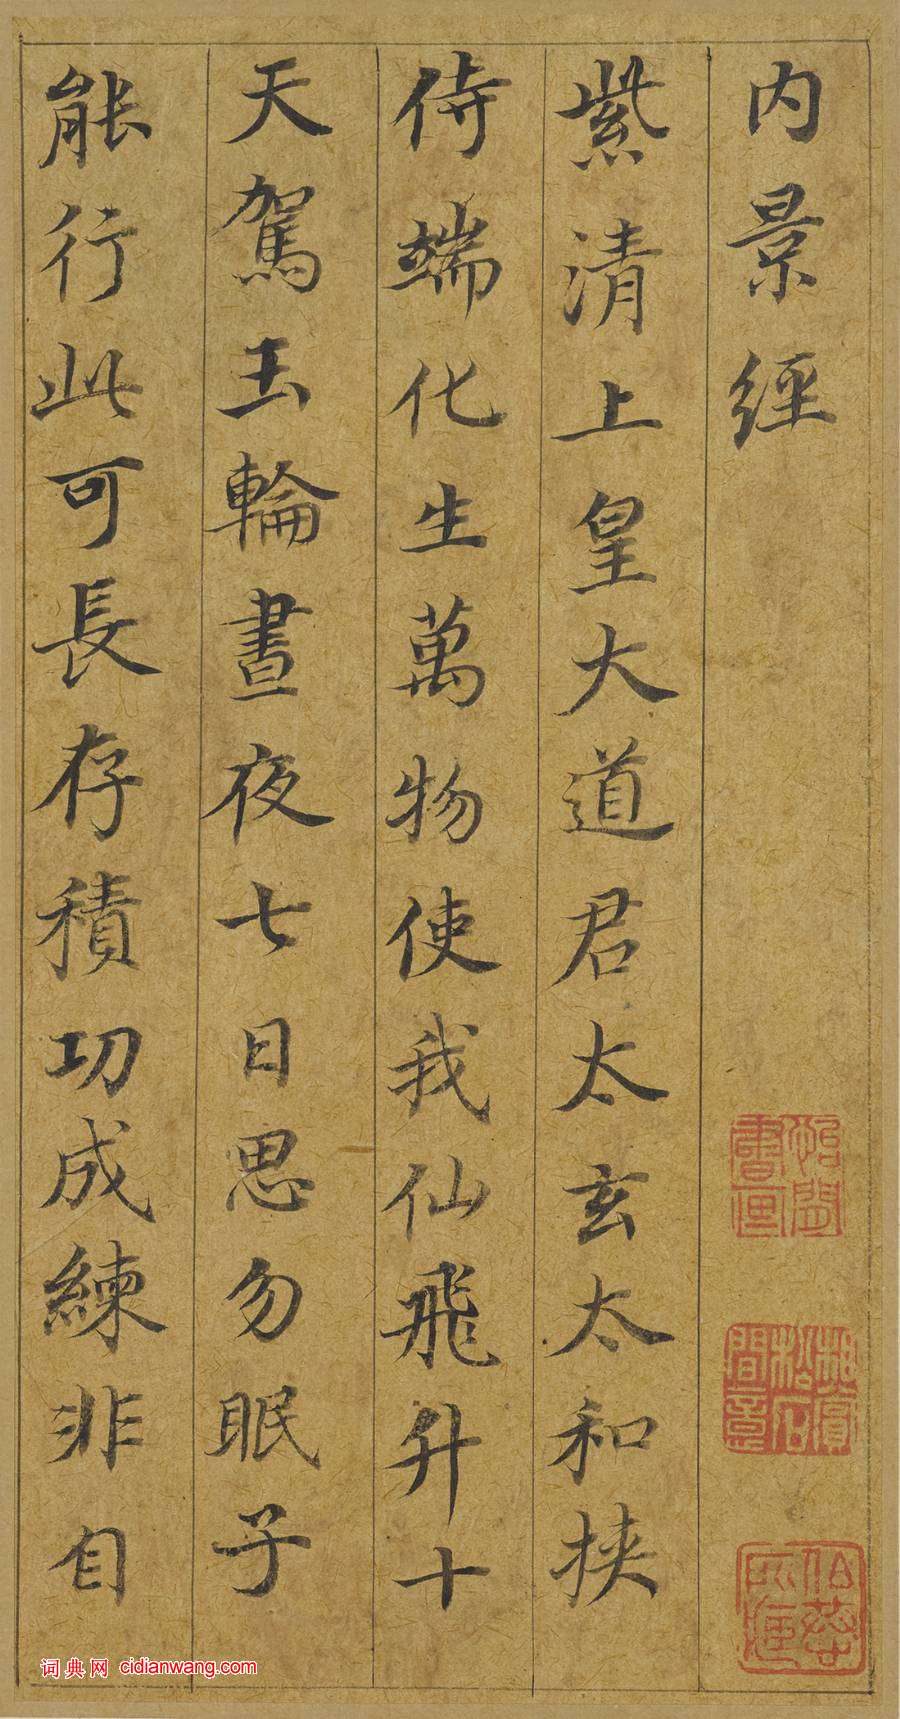 内景經
紫清上皇大道君太玄太和挾
侍端化生萬物使我仙飛升十
天駕玉輪晝夜七日思勿眠子
能行此可長存積功成練非自
词典网 cidianwang.com